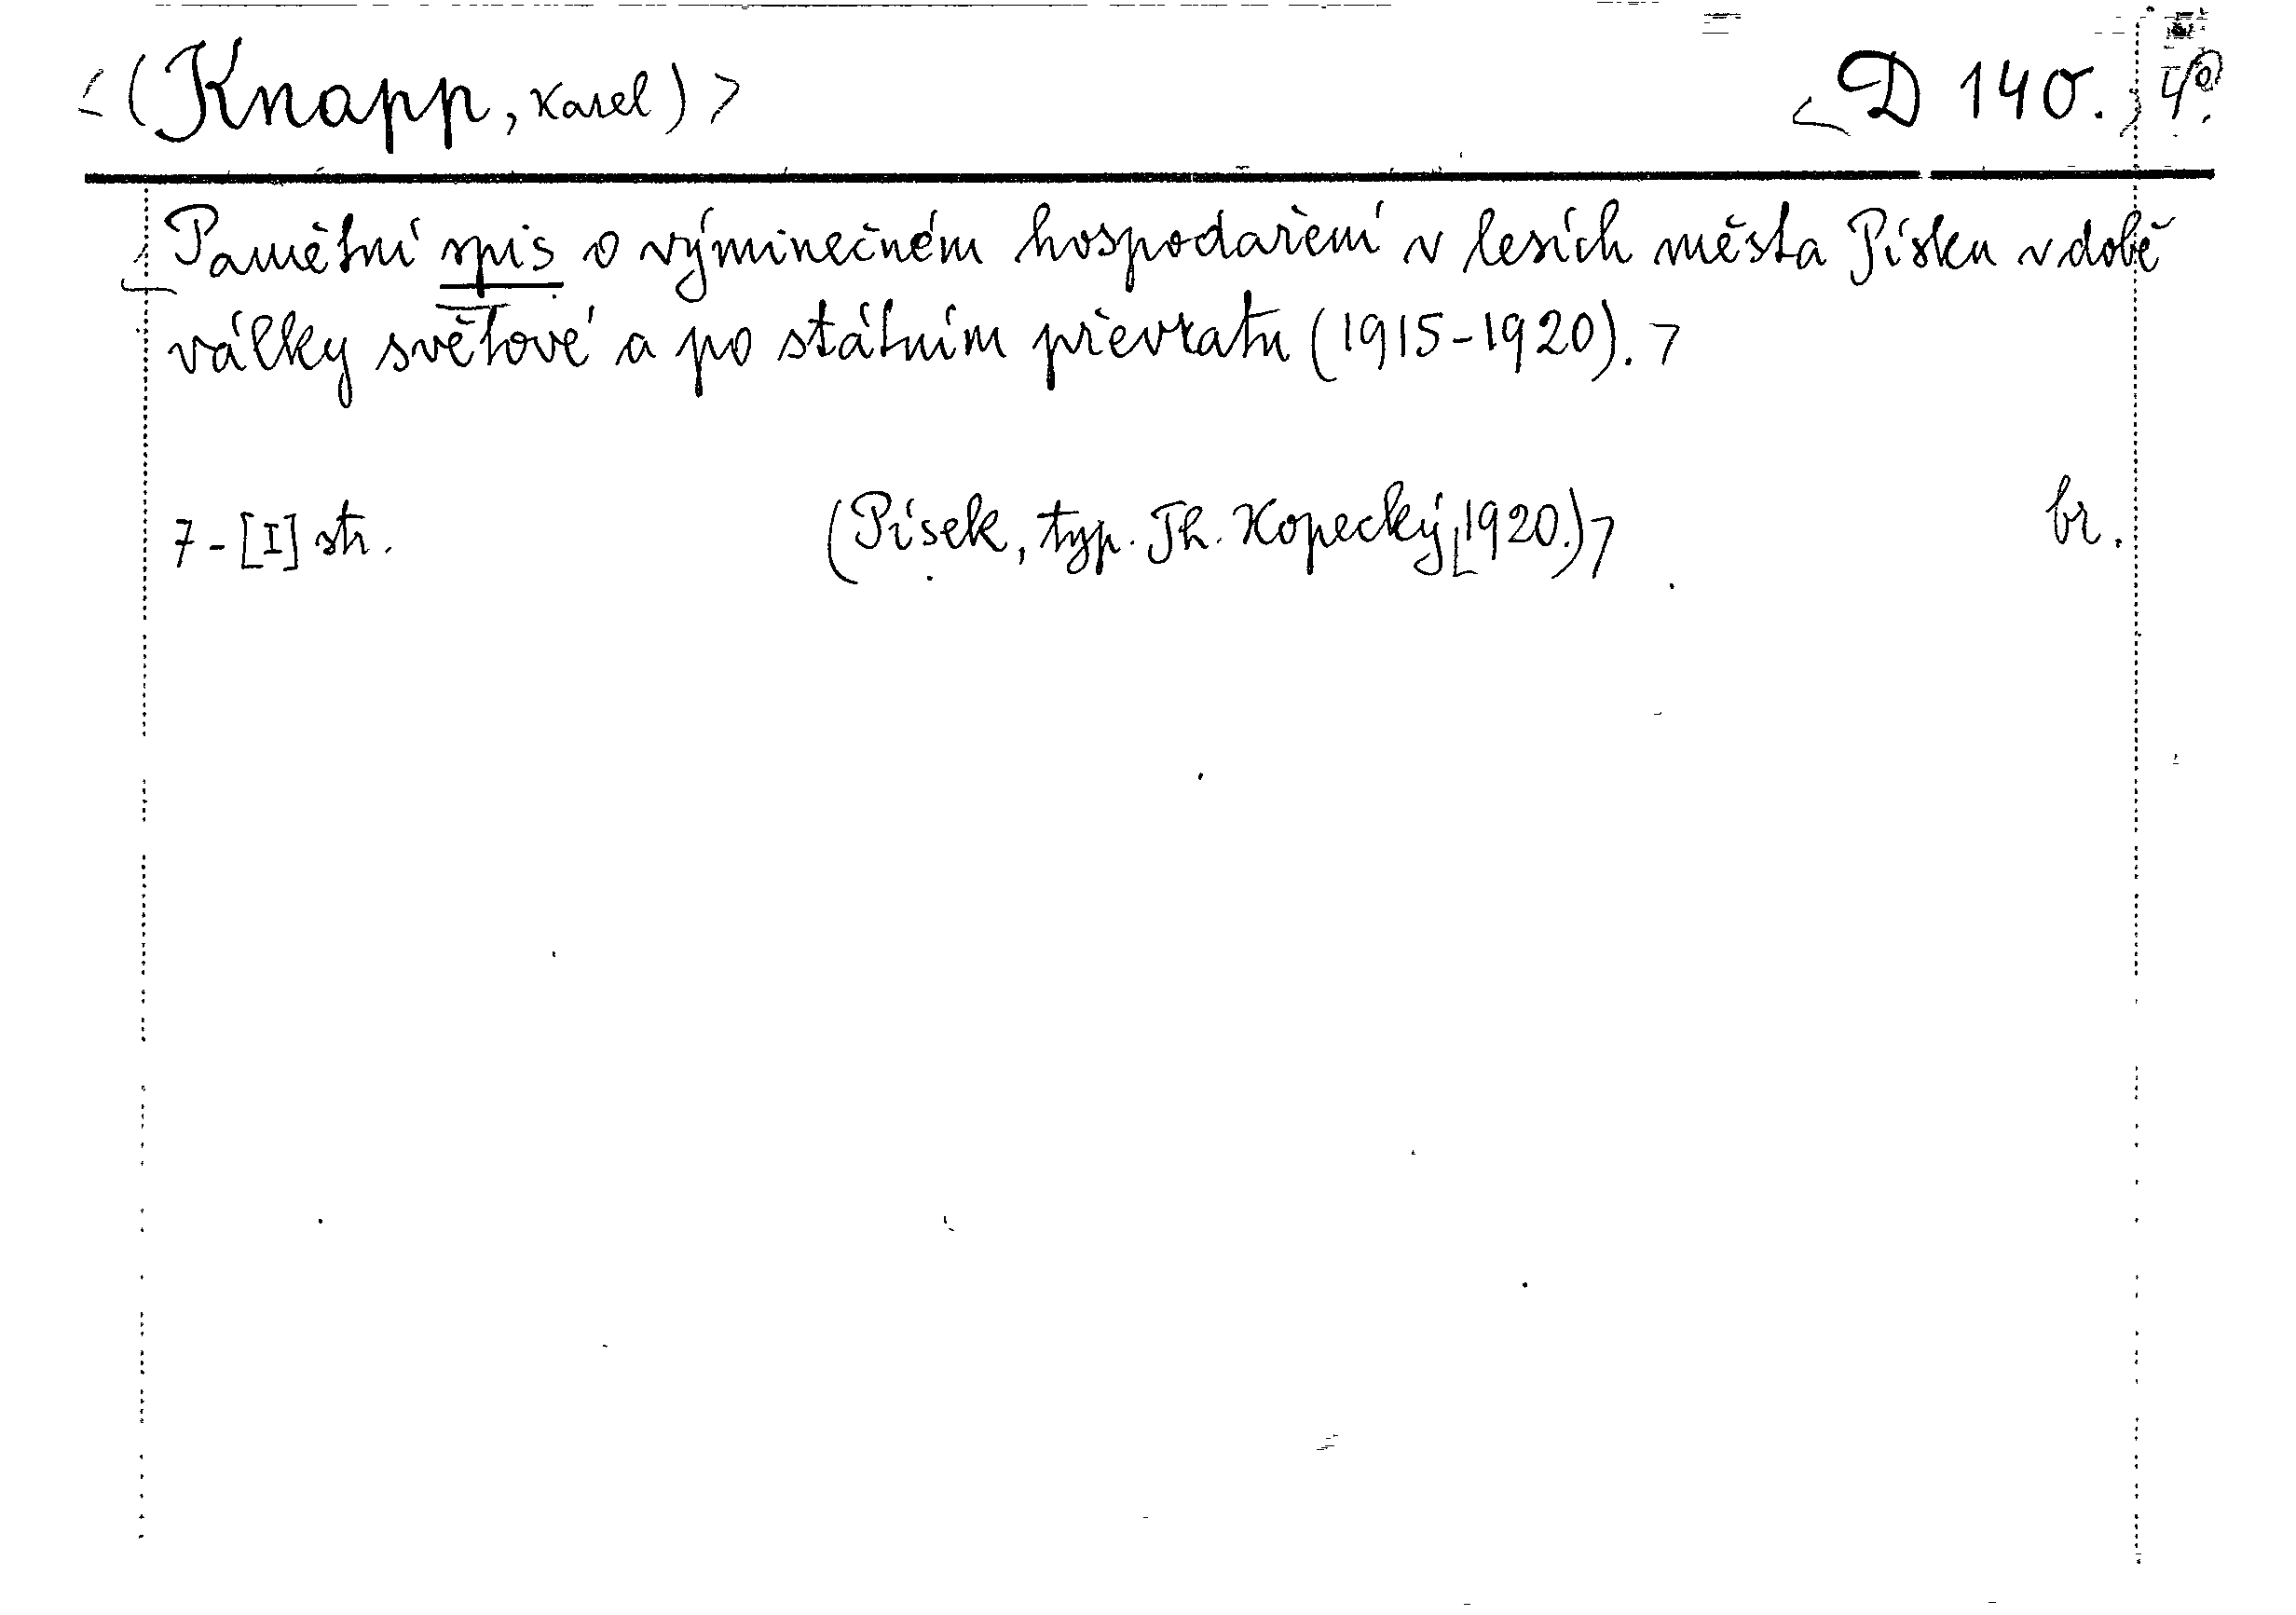 <(Knapp, Karel)> <D 140.> 4°.
Pamětní spis o výminečném hospodaření v lesích města Písku v době
války světové a po státním převratu (1915-1920).>
7-[I] str. (Písek, typ. Th. Kopecký, [1920.)> br.